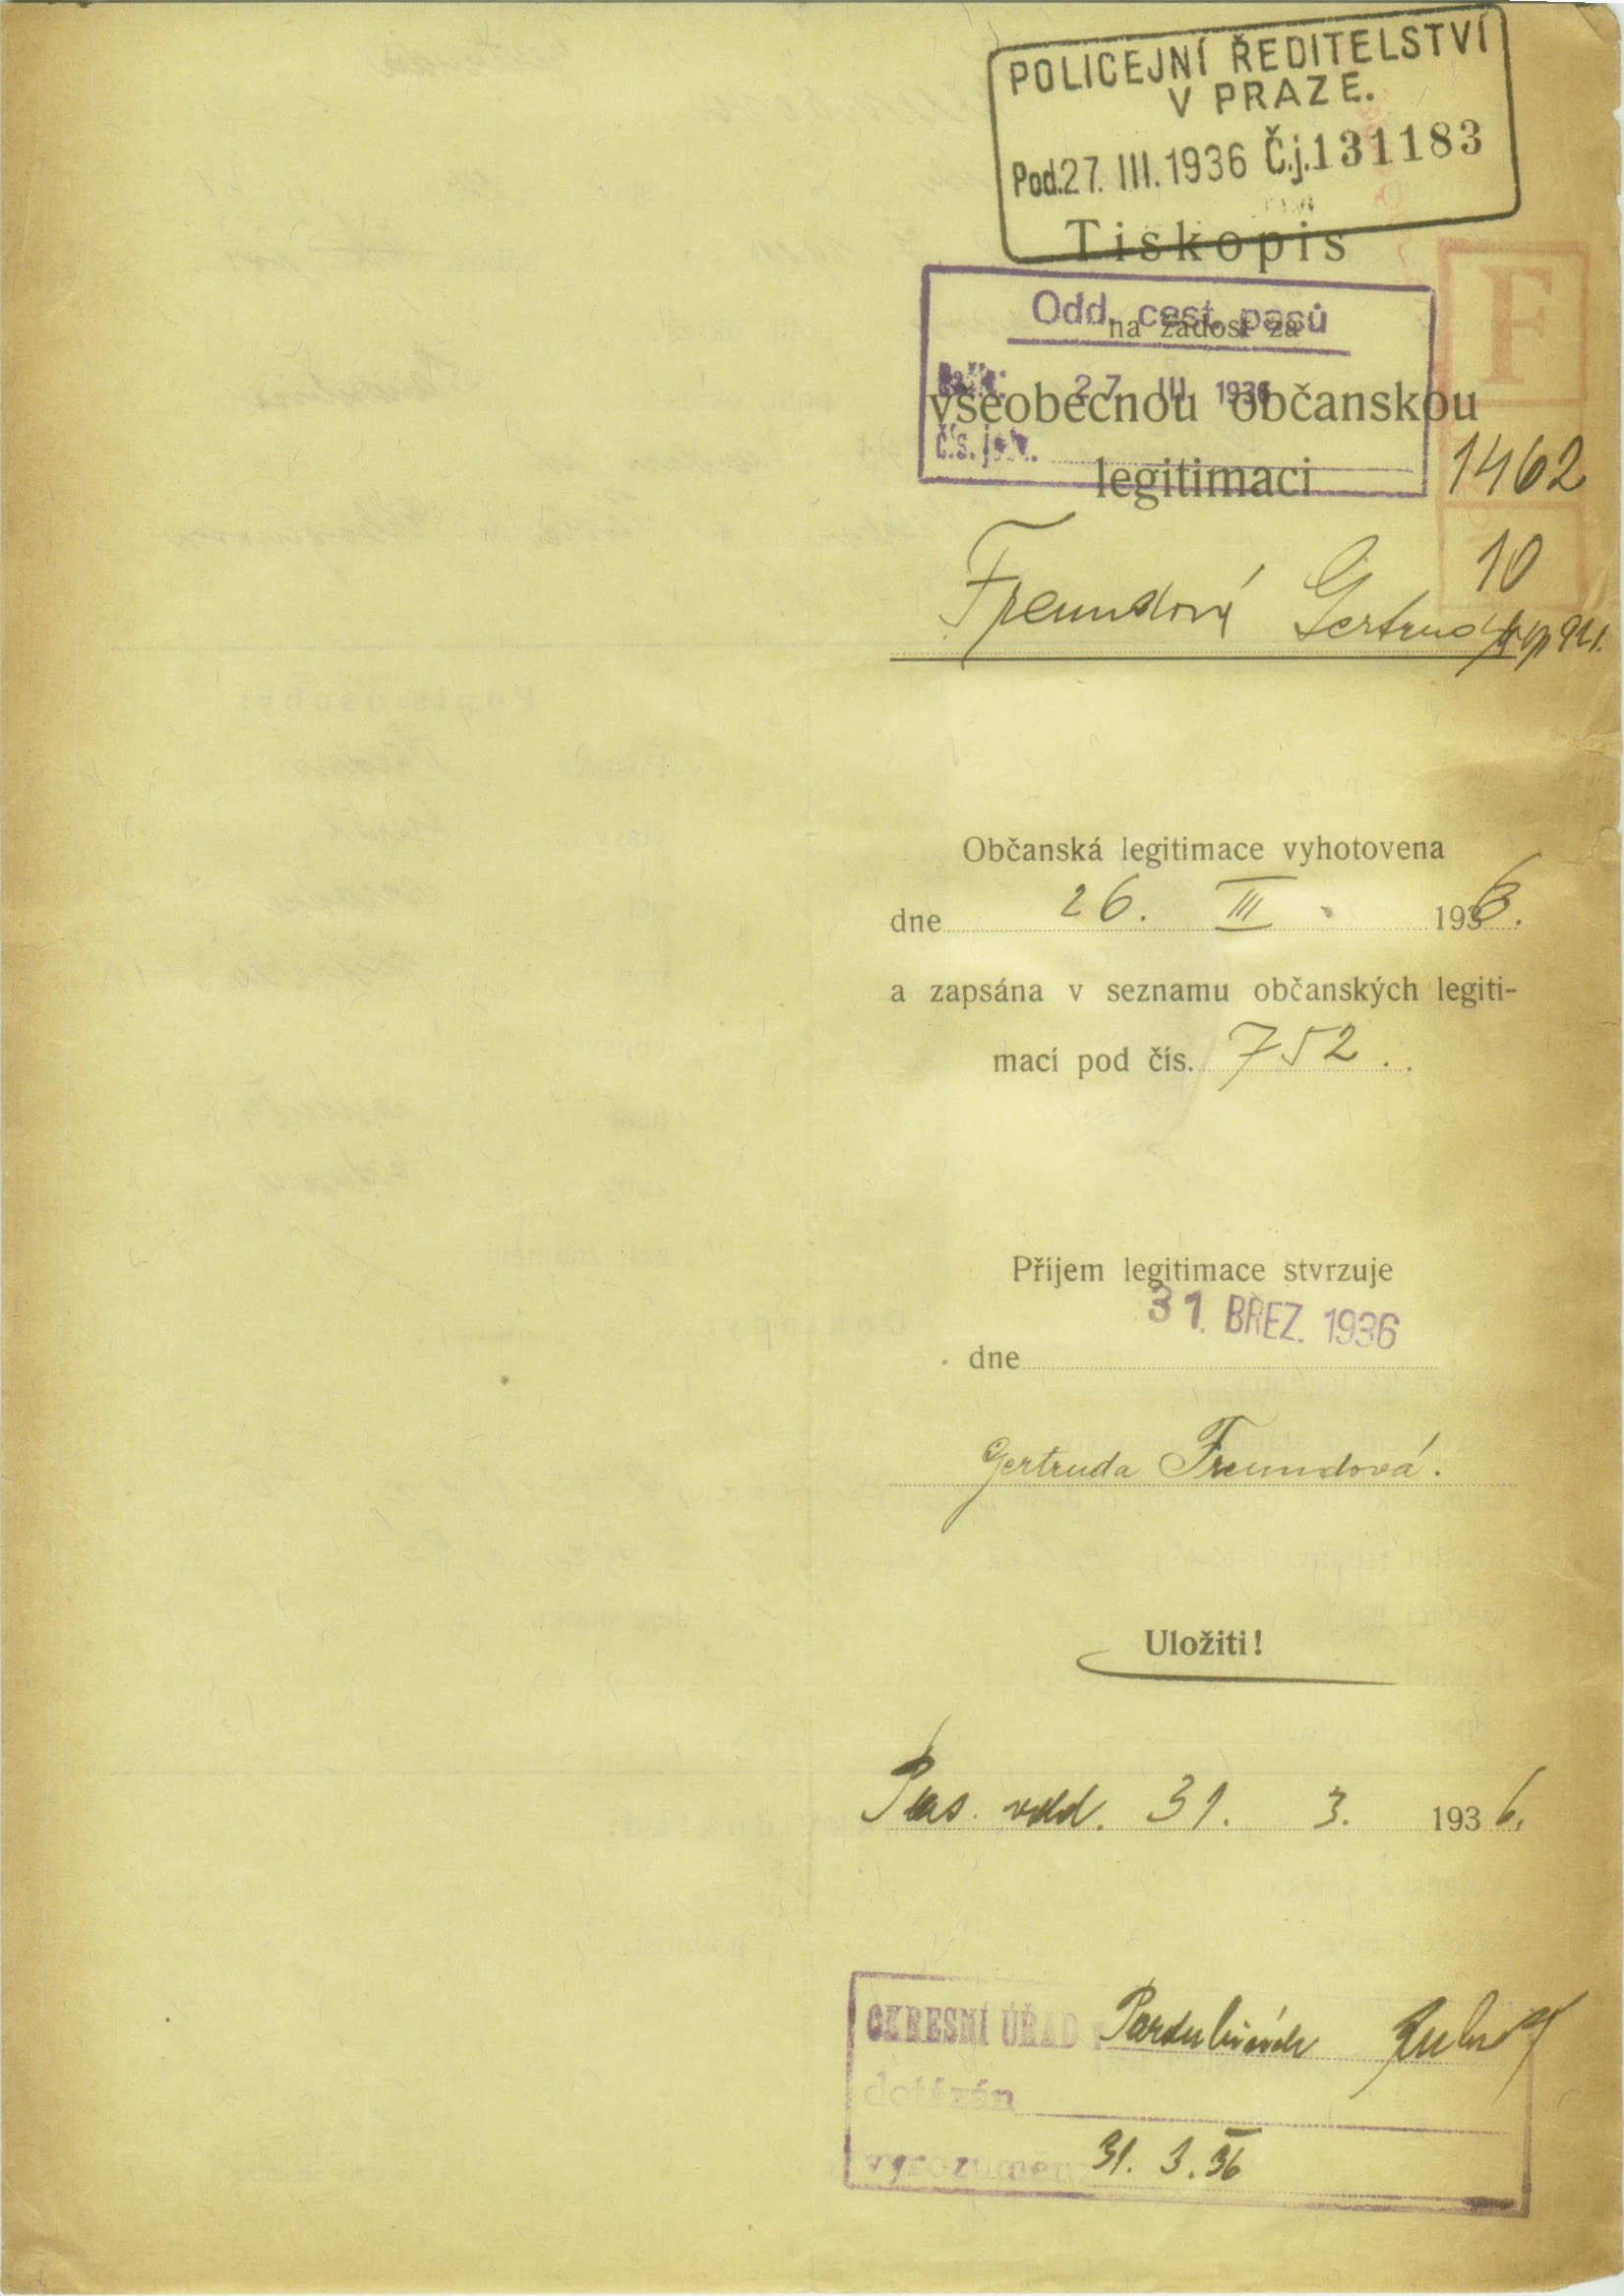 POLICEJNÍ ŘEDITELSTVÍ
V PRAZE.
Pod. 27. III. 1936 Č.j. 131183
Tiskopis
Odd. cest. pasů
na žádost za
27. III 1936
všeobecnou občanskou
čís. jed.
legitimaci
F
1462
10
Freundová Gertruda
Občanská legitimace vyhotovena
dne 26. III. 1936.
a zapsána v seznamu občanských legiti-
mací pod čís. 752.
Příjem legitimace stvrzuje
31. BŘEZ. 1936
dne
Gertruda Freundová.
Uložiti!
Pas. odd. 31. 3. 1936.
OKRESNÍ ÚŘAD Pardubice
dotázán
vyrozuměn 31. 3. 36